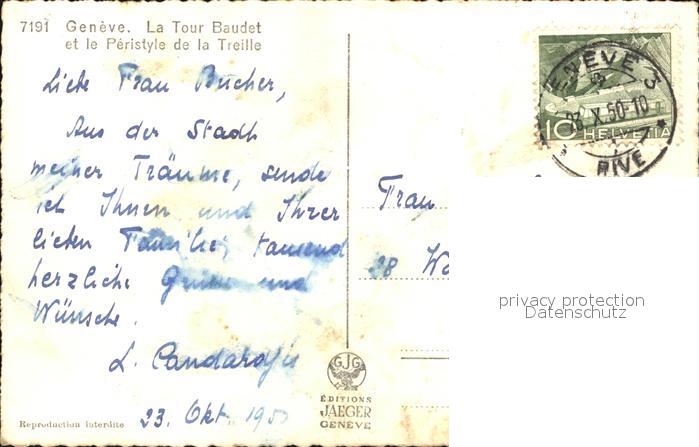 7191 Genève. La Tour Baudet
et le Péristyle de la Treille
Liebe Frau Bucher,
Aus der Stadt
meiner Träume, sende
ich Ihnen und Ihrer
lieben Familie, tausend
herzliche Grüsse und
Wünsche.
L.
23. Okt. 195
Reproduction interdite
GJG
ÉDITIONS
JAEGER
GENÈVE
ENÈVE 3
X.50-10
RIVE
10 HELVETIA
Frau
28
privacy protection
Datenschutz